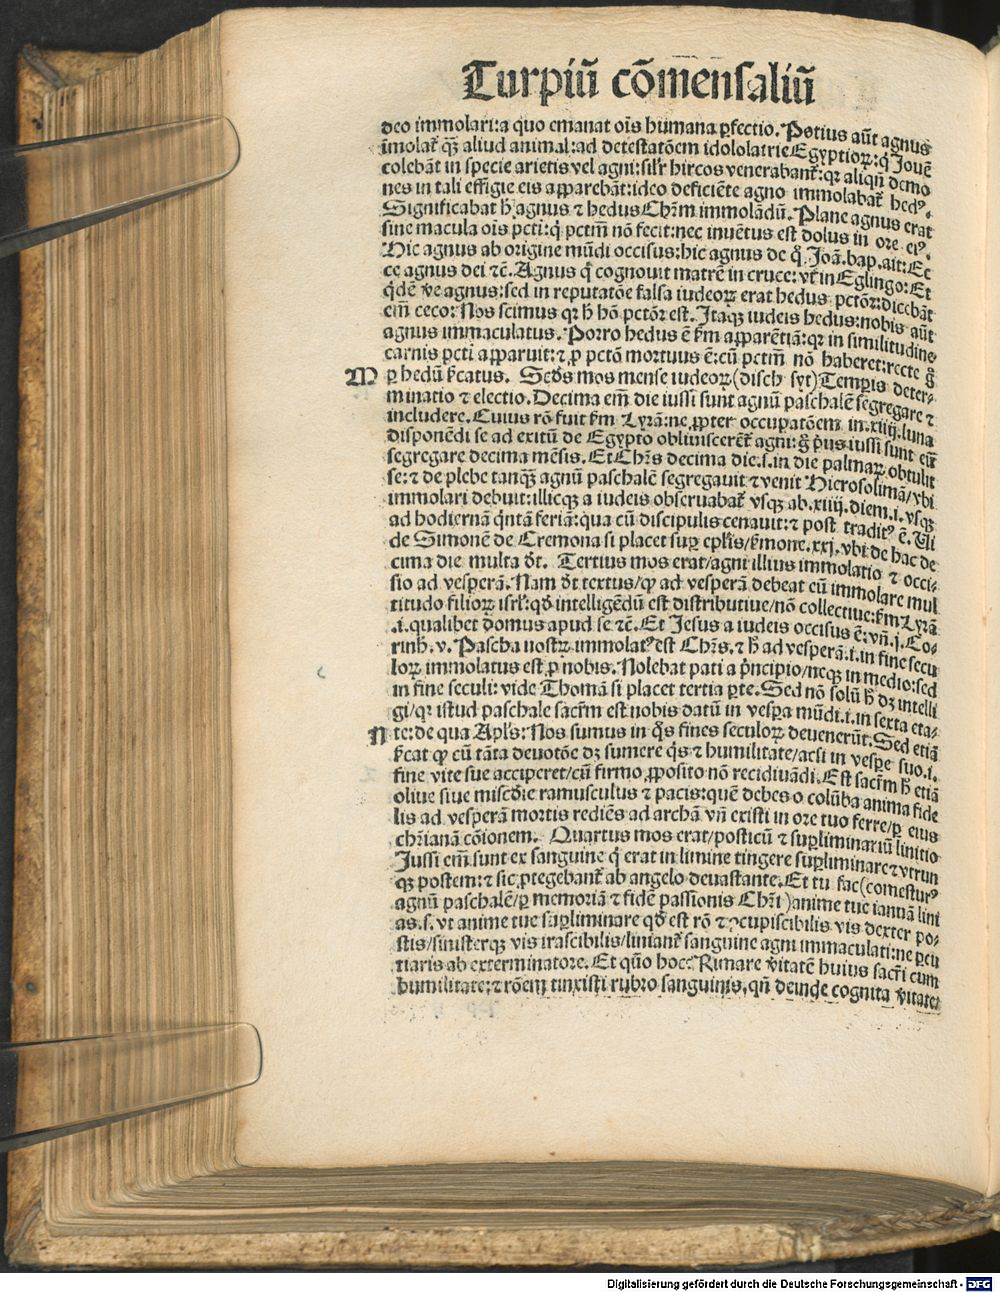 Turpiū cōmensaliū
deo immolari: a quo emanat oīs humana ꝑfectio. Potius aūt agnus
īmolat᷒ qȝ aliud animal: ad detestatōem idololatrie Egyptioꝝ: q̇ Jouē
colebāt in specie arietis vel agni: sil'r hircos venerabant᷒: qꝛ aliqn̄ demo
nes in tali effigie eis apparebāt: ideo deficiēte agno immolabat᷒ hedꝰ.
Significabat h̄ agnus ⁊ hedus Chr̄m immolādū. Plane agnus erat
sine macula oīs pctī: q̇ pctm̄ nō fecit: nec inuētus est dolus in ore eiꝰ.
Hic agnus ab origine mūdi occisus: hic agnus de q̊ Joā. bap. ait: Ec
ce agnus dei ⁊c̄. Agnus q̇ cognouit matrē in cruce: vt᷒ in Eglingo: Et
q̇dē v̄e agnus: sed in reputatōe falsa iudeoꝝ erat hedus pctōꝝ: dicebāt
em̄ ceco: Nos scimus qꝛ h̄ hō pctōr est. Itaqȝ iudeis hedus: nobis aūt
agnus immaculatus. Porro hedus ē km̄ apparētiā: qꝛ in similitudine
carnis pcti apparuit: ⁊ ꝓ pctō mortuus ē: cū pctm̄ nō haberet: recte g̊
M ꝑ hedū k̄catus. Scd's mos mense iudeoꝝ (disch syt) Temꝑis deter-
minatio ⁊ electio. Decima em̄ die iussi sunt agnū paschalē segregare ⁊
includere. Cuius rō fuit km̄ Lyrā: ne ꝓpter occupatōem in .xiiij. luna
disponēdi se ad exitū de Egypto obliuiscerēt᷒ agni: g̊ pꝰus iussi sunt eū
segregare decima mēsis. Et Chr̄s decima die .s. in die palmaꝝ obtulit
se: ⁊ de plebe tanqȝ agnū paschalē segregauit ⁊ venit Hierosolimā/ vbi
immolari debuit: illicqȝ a iudeis obseruabat᷒ vsqȝ ab .xiiij. diem .i. vsqȝ
ad hodiernā q̇ntā feriā: qua cū discipulis cenauit: ⁊ post traditꝰ ē. Vi
de Simonē de Cremona si placet suꝑ epl'is/ k̄mone .xxj. vbi de hac de
cima die multa d't. Tertius mos erat/ agni illius immolatio ⁊ occi-
sio ad vesperā. Nam d't textus/ ꝙ ad vesperā debeat eū immolare mul
titudo filioꝝ isrl': qd' intelligēdū est distributiue/ nō collectiue: km̄ Lyrā
.i. qualibet domus apud se ⁊c̄. Et Jesus a iudeis occisus ē: vn̄ .j. Co-
rinh. v. Pascha nostꝝ immolatꝰ est Chr̄s. ⁊ h̄ ad vesperā .i. in fine secu
loꝝ immolatus est ꝓ nobis. Nolebat pati a pꝛncipio/ neqȝ in medio: sed
in fine seculi: vide Thomā si placet tertia ꝑte. Sed nō solū h̄ dȝ intelli
gi/ qꝛ istud paschale sacr̄m est nobis datū in vespa mūdi .i. in sexta eta-
N te: de qua Apl's: Nos sumus in q̊s fines seculoꝝ deuenerūt. Sed etiā
k̄cat ꝙ cū tāta deuotōe dȝ sumere q̇s ⁊ humilitate/ acsi in vespe suo .i.
fine vite sue acciperet/ cū firmo ꝓposito nō recidiuādi. Est sacr̄m h̄ etiā
oliue siue miscd'ie ramusculus ⁊ pacis: quē debes o colūba anima fide
lis ad vesperā mortis rediēs ad archā vn̄ existi in ore tuo ferre/ ꝑ eius
chr̄ianā cōionem. Quartus mos erat/ posticū ⁊ suꝑliminariū linitio
Jussi em̄ sunt ex sanguine q̇ erat in limine tingere suꝑliminare ⁊ vtrun
qȝ postem: ⁊ sic ꝓtegebant᷒ ab angelo deuastante. Et tu fac (comesturꝰ
agnū paschalē/ ꝑ memoriā ⁊ fidē passionis Chr̄i) anime tue ianuā lini
as .s. vt anime tue suꝑliminare qd' est rō ⁊ ꝯcupiscibilis vis dexter po-
stis/ sinisterqȝ vis irascibilis/ liniant᷒ sanguine agni immaculati: ne ꝑcu
tiaris ab exterminatore. Et quō hoc? Rimare v̄itatē huius sacr̄i cum
humilitate: ⁊ rōem tinxisti rubro sanguinis, qn̄ deinde cognita v̄itate:
Digitalisierung gefördert durch die Deutsche Forschungsgemeinschaft - DFG